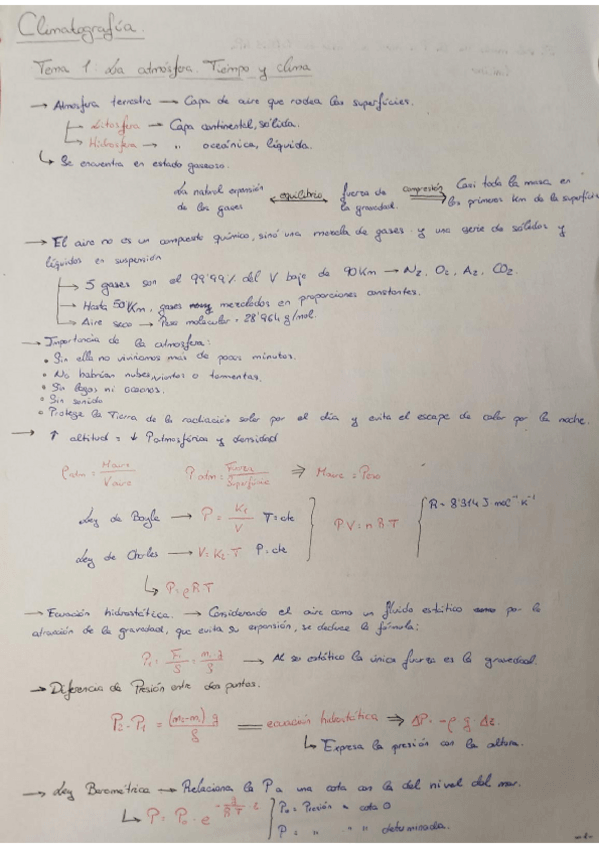 Climatografía.
Tema 1: La atmósfera. Tiempo y clima
→ Atmósfera terrestre → Capa de aire que rodea las superficies.
→ Litosfera → Capa continental, sólida.
→ Hidrosfera → " oceánica, líquida.
↳ Se encuentra en estado gaseoso.
La natural expansión de los gases ←equilibrio→ fuerza de la gravedad. compresión ⇒ Casi toda la masa en los primeros km de la superficie
→ El aire no es un compuesto químico, sinó una mezcla de gases y una serie de sólidos y
líquidos en suspensión
→ 5 gases son el 99'99% del V bajo de 90 Km → N₂, O₂, Az, CO₂.
→ Hasta 50 Km, gases muy mezclados en proporciones constantes.
→ Aire seco → Peso molecular = 28'964 g/mol.
→ Importancia de la atmósfera:
• Sin ella no viviríamos más de pocos minutos.
• No habrían nubes, vientos o tormentas.
• Sin lagos ni oceanos.
• Sin sonido
• Protege la Tierra de la radiació solar por el día y evita el escape de calor por la noche.
→ ↑ altitud = ↓ P atmosférica y densidad
ρ atm = Maire / V aire P atm = Fuerza / Superficie ⇒ Maire = Peso
Ley de Boyle → P = K₁ / V T = cte } PV = n R T { R = 8'314 J mol⁻¹ K⁻¹
Ley de Charles → V = K₂ · T P = cte
↳ P = ρ R T
→ Ecuación hidrostática. → Considerando el aire como un fluido estático como por la
atracción de la gravedad, que evita su expansión, se deduce la fórmula:
P₁ = F / S = m₁ · g / S → Al ser estático la única fuerza es la gravedad.
→ Diferencia de Presión entre dos puntos.
P₂ - P₁ = (m₂ - m₁) g / S = ecuación hidrostática ⇒ ΔP = -ρ g · Δz.
↳ Expresa la presión con la altura.
→ Ley Barométrica → Relaciona la P a una cota con la del nivel del mar.
↳ P = P₀ · e^(-g / R T · z) { P₀ = Presión a cota 0
P = " " " determinada.
-1-